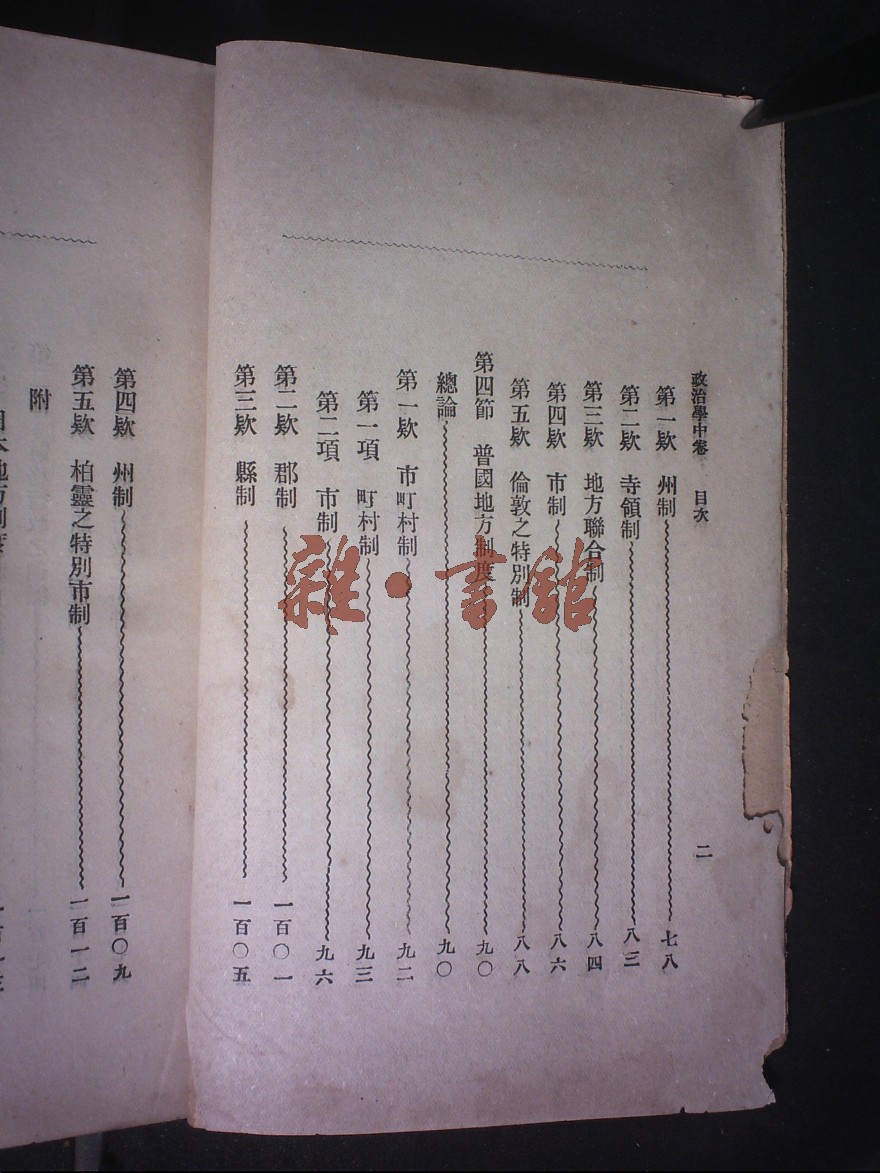 政治學中卷 目次 二
第一欵 州制 七八
第二欵 寺領制 八三
第三欵 地方聯合制 八四
第四欵 市制 八六
第五欵 倫敦之特別制 八八
第四節 普國地方制度 九〇
總論 九〇
第一欵 市町村制 九二
第一項 町村制 九三
第二項 市制 九六
第二欵 郡制 一百〇一
第三欵 縣制 一百〇五
第四欵 州制 一百〇九
第五欵 柏靈之特別市制 一百一二
附
日本地方制度
雜·書館